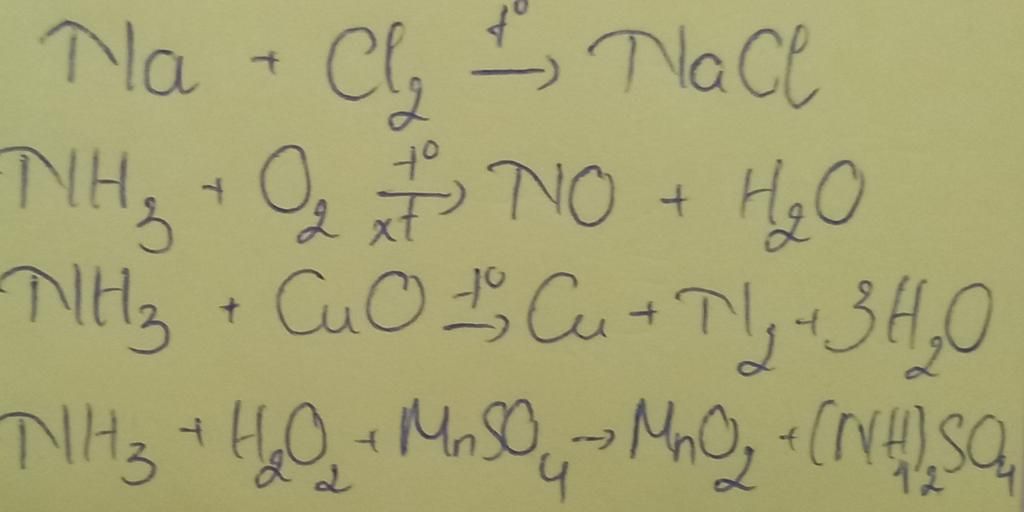 Na + Cl₂ t° → NaCl
NH₃ + O₂ t° → xt NO + H₂O
NH₃ + CuO t° → Cu + N₂ + 3H₂O
NH₃ + H₂O₂ + MnSO₄ → MnO₂ + (NH₄)₂SO₄